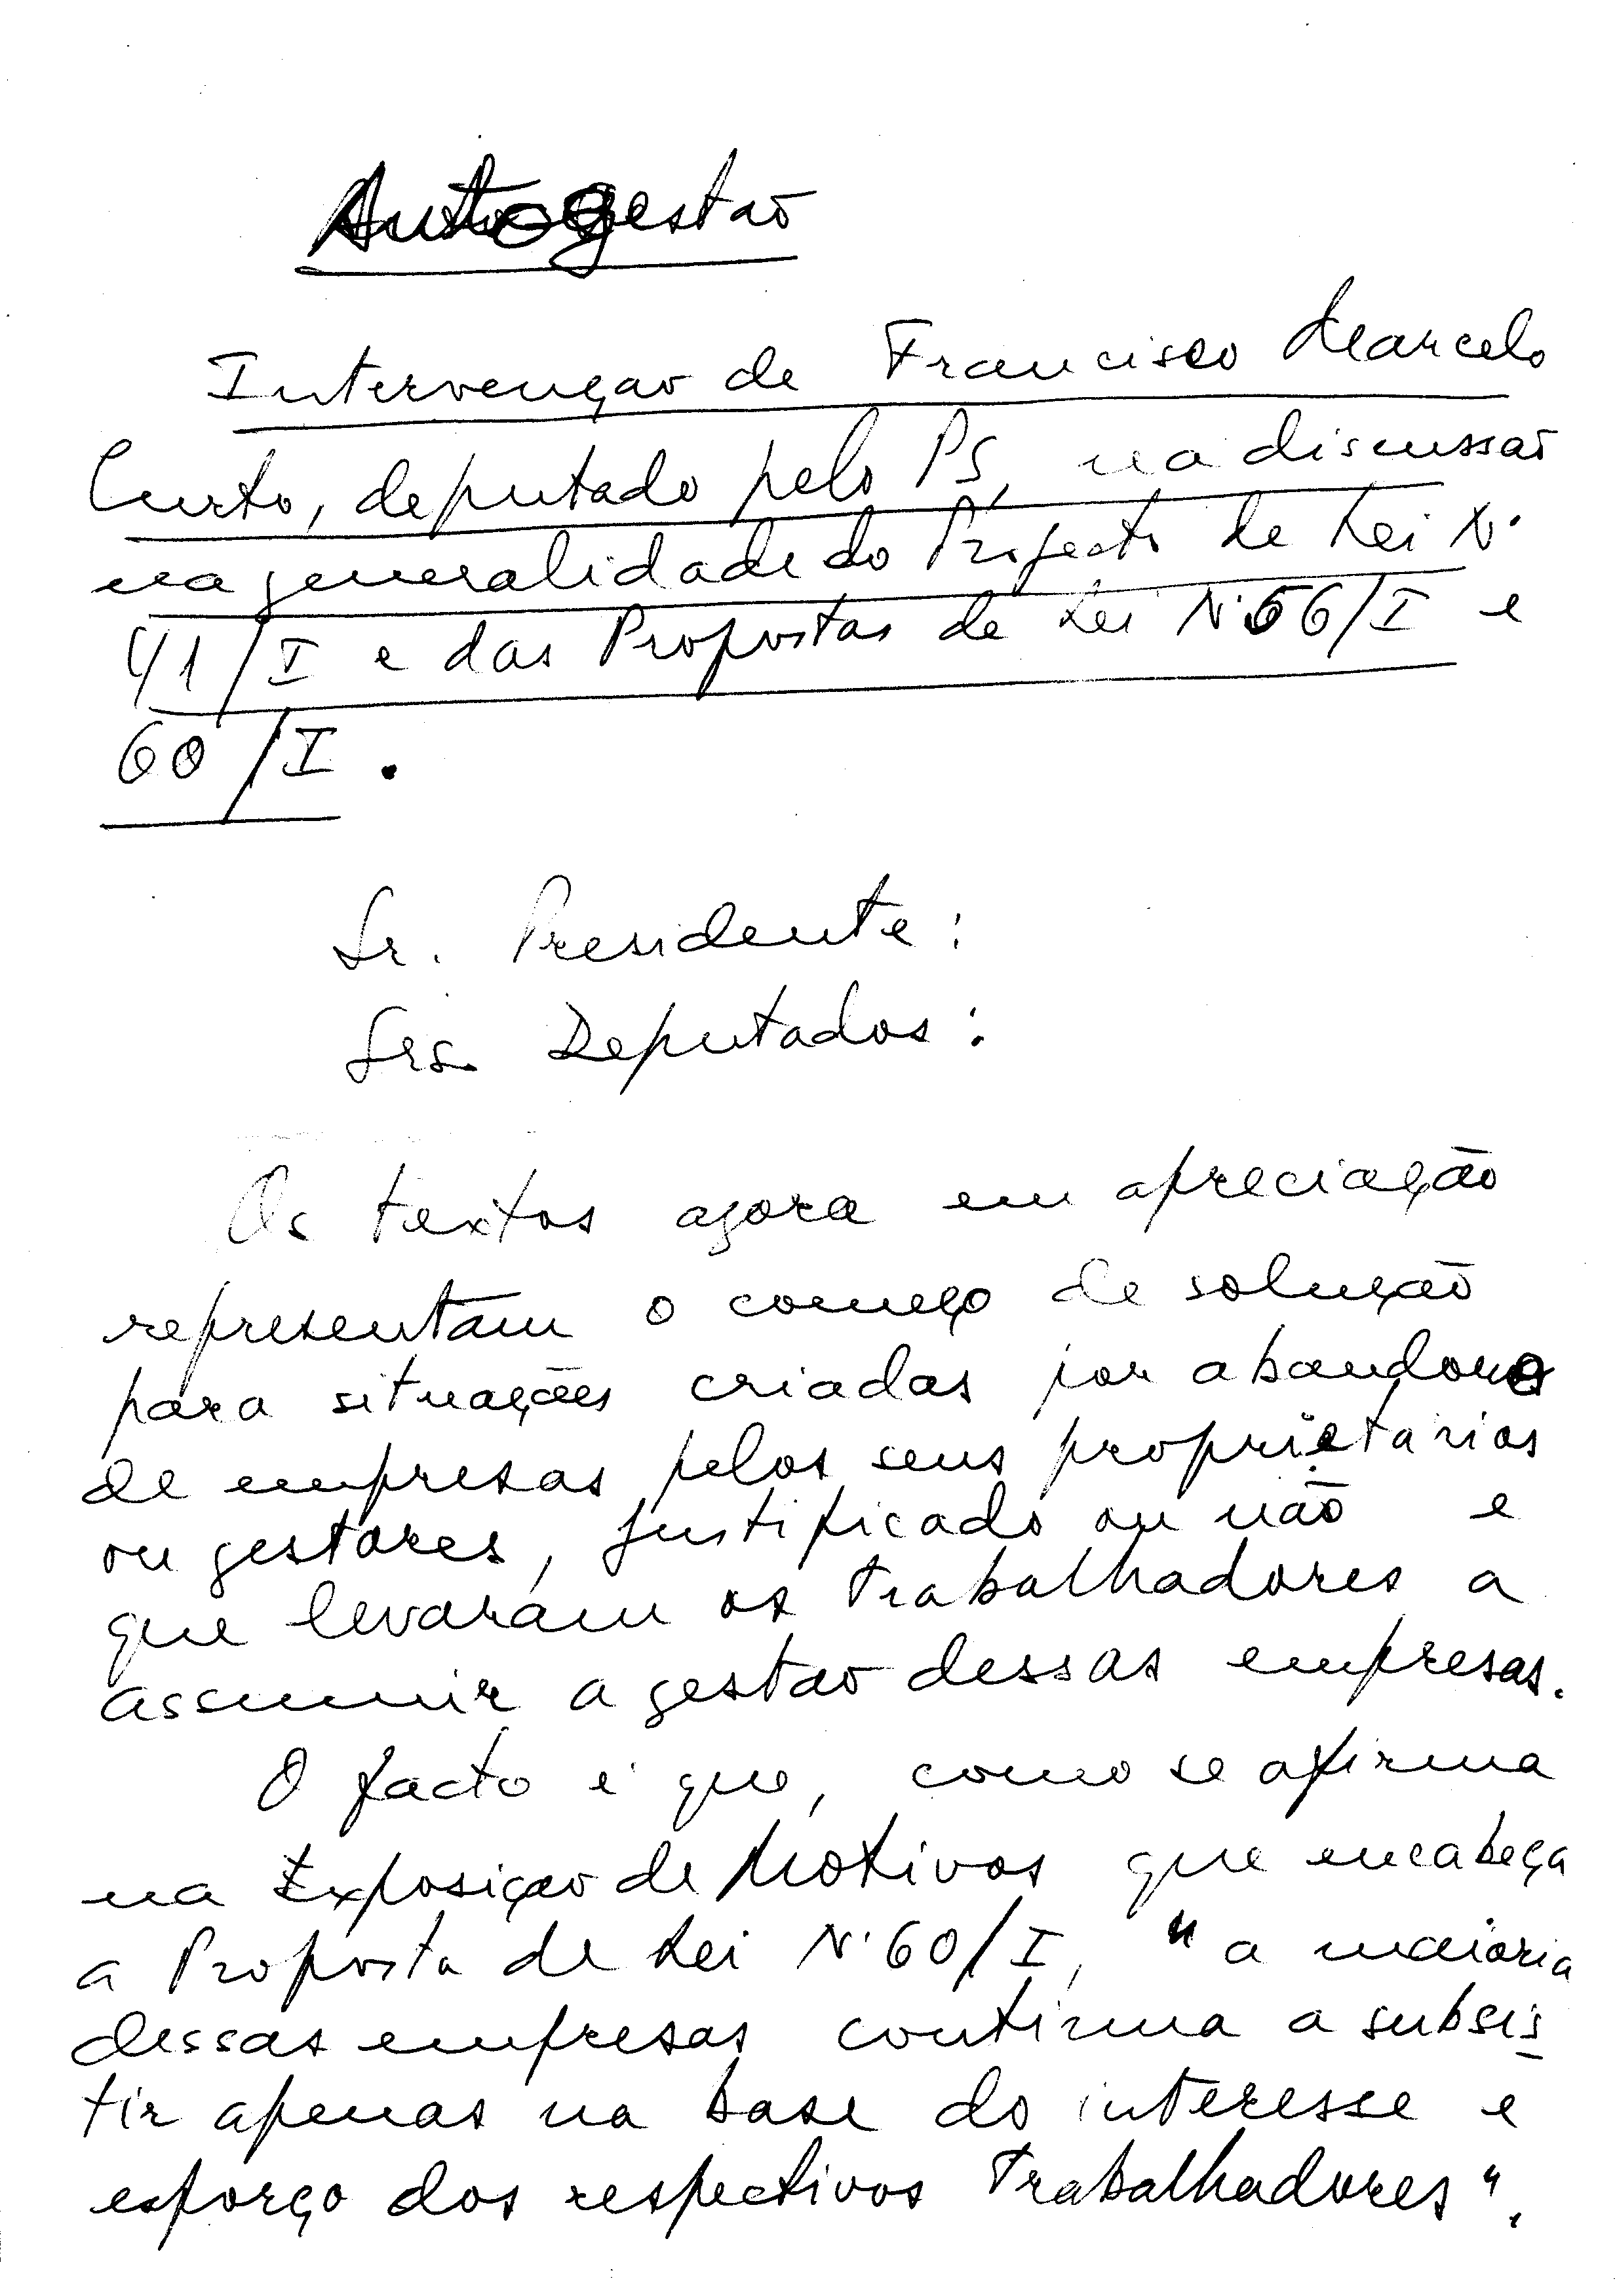 Autogestão
Intervenção de Francisco Marcelo
Curto, deputado pelo PS, na discussão
na generalidade do Projecto de Lei N.
41/I e das Propostas de Lei N. 56/I e
60/I.
Sr. Presidente:
Srs. Deputados:
Os textos agora em apreciação
representam o começo de solução
para situações criadas por abandono
de empresas pelos seus proprietários
ou gestores, justificado ou não e
que levaram os trabalhadores a
assumir a gestão dessas empresas.
O facto é que, como se afirma
na Exposição de Motivos que encabeça
a Proposta de Lei N. 60/I, "a maioria
dessas empresas continua a subsis
tir apenas na base do interesse e
esforço dos respectivos trabalhadores".